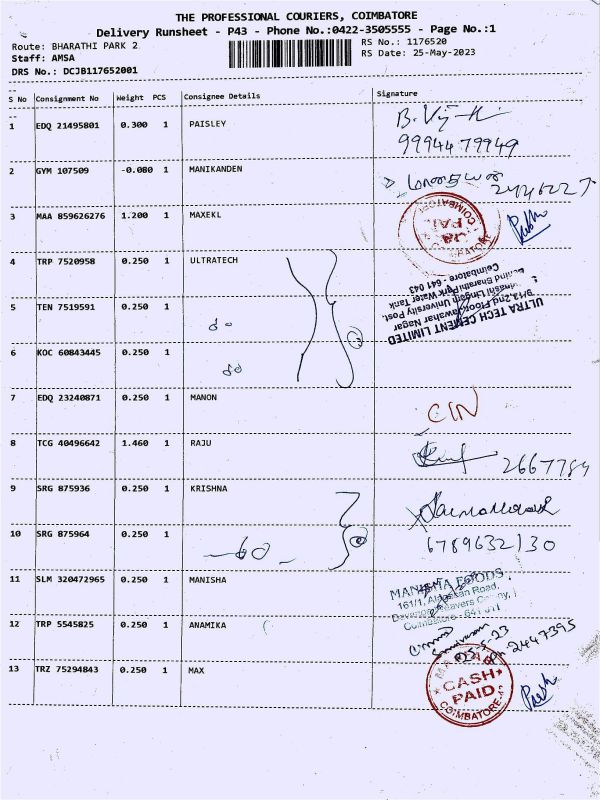 THE PROFESSIONAL COURIERS, COIMBATORE
Delivery Runsheet - P43 - Phone No.:0422-3505555 - Page No.:1
Route: BHARATHI PARK 2
RS No.: 1176520
Staff: AMSA
RS Date: 25-May-2023
DRS No.: DCJB117652001
S No Consignment No Weight PCS Consignee Details Signature
1 EDQ 21495801 0.300 1 PAISLEY
9994479949
2 GYM 107509 -0.080 1 MANIKANDEN
2446227
3 MAA 859626276 1.200 1 MAXEKL
COIMBATORE
4 TRP 7520958 0.250 1 ULTRATECH
ULTRA TECH CEMENT LIMITED
9/13, 2nd Floor, Jawahar Nagar
Lingam University Post,
Behind Bharathi Park Water Tank
Coimbatore - 641 043
5 TEN 7519591 0.250 1
6 KOC 60843445 0.250 1
7 EDQ 23240871 0.250 1 MANON
CIN
8 TCG 40496642 1.460 1 RAJU
2667784
9 SRG 875936 0.250 1 KRISHNA
10 SRG 875964 0.250 1
6789632130
11 SLM 320472965 0.250 1 MANISHA
MANISHA FOODS,
161/1, Road,
Colony,
Coimbatore - 641 011
12 TRP 5545825 0.250 1 ANAMIKA
2447395
13 TRZ 75294843 0.250 1 MAX
CASH
PAID
COIMBATORE